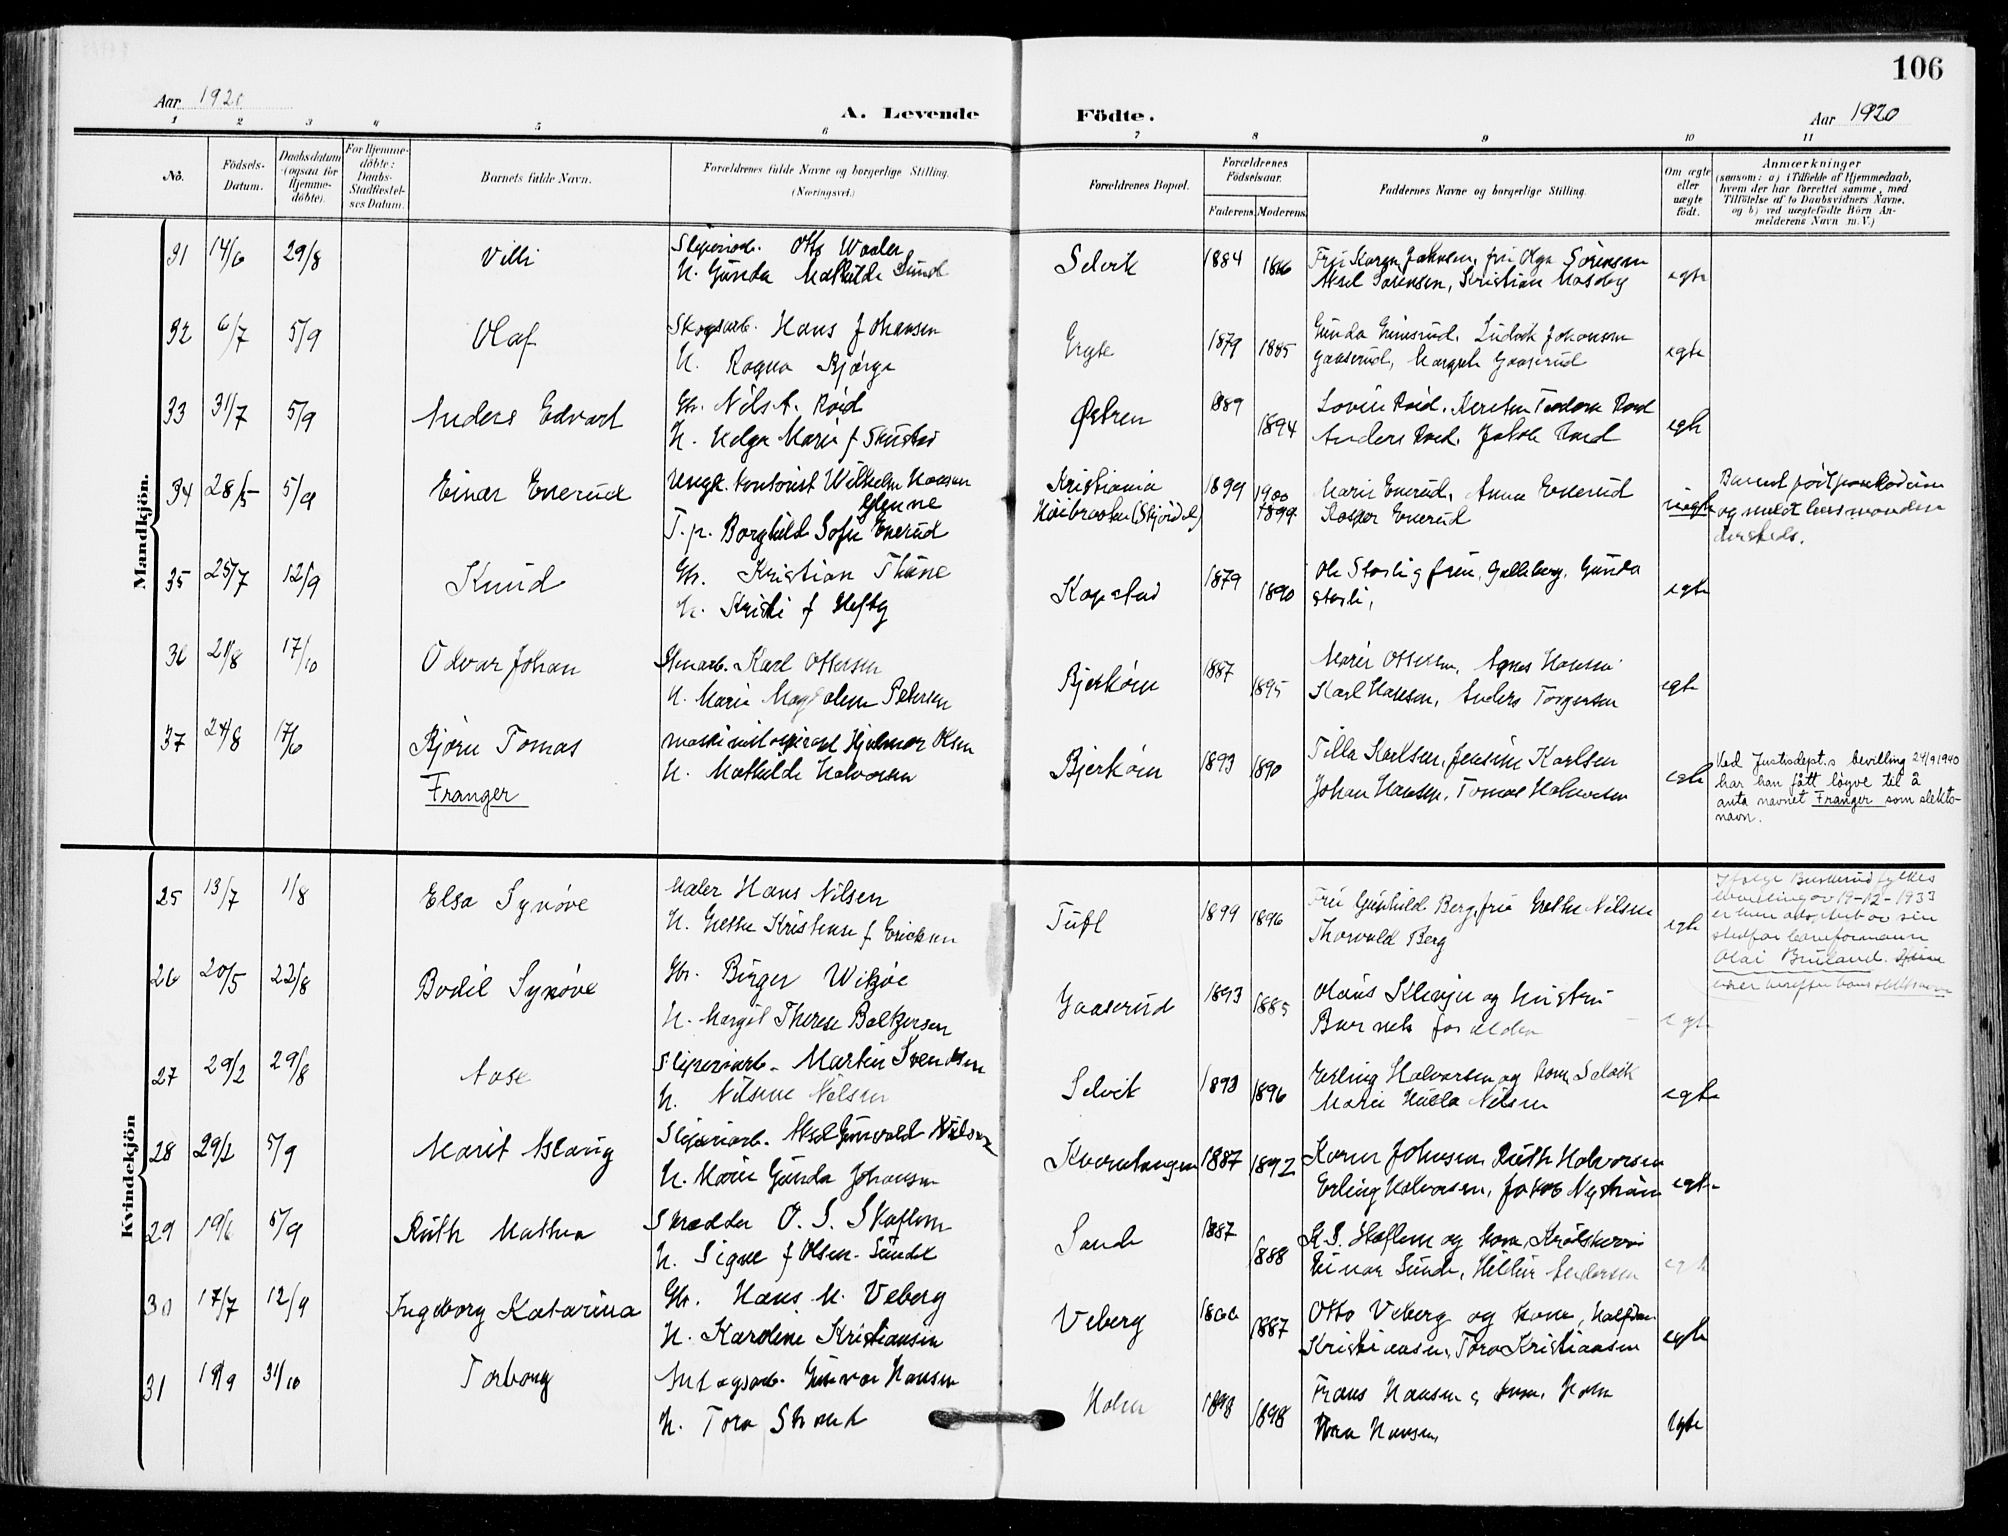 106
Aar 1920
A. Levende Födte.
Aar 1920
1 2 3 4 5 6 7 8 9 10 11
No.
Födsels-Datum.
Daabsdatum (ogsaa for Hjemmedöbte).
For Hjemmedöbte: Daabs-Stadfæstelses Datum.
Barnets fulde Navn.
Forældrenes fulde Navne og borgerlige Stilling. (Næringsvei.)
Forældrenes Bopæl.
Forældrenes Födselsaar.
Faderens. Moderens.
Faddernes Navne og borgerlige Stilling.
Om ægte eller uægte födt.
Anmærkninger
(saasom: a) i Tilfælde af Hjemmedaab, hvem der har forrettet samme, med Tilföielse af to Daabsvidners Navne, og b) ved uægtefödte Börn Anmelderens Navn m. V.)
Mandkjön.
31 14/6 29/8 Villi Sliperiarb. Otto Waaler Selvik 1884 Fru Karen Johnsen, fru Olga Sörensen
H. Gunda Mathilde Sund 1886 Aksel Sörensen, Kristian Masseby egte
32 6/7 5/9 Olaf Skogsarb. Hans Johansen 1879 1885 Gunda Grimsrud, Ludvik Johansen
H. Ragna Bjørge Gaaserud, Margit Gaaserud egte
33 31/7 5/9 Anders Edvart Gbr. Nils A. Röed Østren 1889
H. Helga Marie f Skustad 1894 Anders Röed, Jakob Röed egte
34 28/5 5/9 Einar Enerud Ungk. kontorist Wilhelm Hansen Kristiania 1899 1900 Marie Enerud, Anna Enerud
Glenne Høibraaten 1899 Kasper Enerud uegte
T. p. Borghild Sofie Enerud
35 25/7 12/9 Knud Gbr. Kristian Thune Kopstad 1879 1890 Ole Stasli g frue, Galleberg, Gunda
H. Kristi f Hefty Stasli, egte
36 21/8 17/10 Odvar Johan Stenarb. Karl Ottersen Bjerkøen 1887 Marie Ottersen, Agnes Hansen
H. Marie Magdalene Petersen 1895 Karl Hansen, Anders Torgersen egte
37 24/8 17/6 Bjørn Tomas maskinistaspirant Hjalmar Olsen Bjerkøen 1893 1890 Tilla Karlsen, Jensine Karlsen
Franger H. Mathilde Halvorsen Johan Hansen, Tomas Halvorsen egte
Ved Justisdept.s bevilling 24/9 1940
har han fått løyve til å
anta navnet Franger som slekts-
navn.
Kvindekjön
25 13/7 1/8 Elsa Synøve Maler Hans Nilsen Tuft 1899 1896 Fru Gunhild Berg, fru Grethe Nilsen
H. Grethe Kristense f Ericksen Thorvald Berg egte
Ifølge Buskerud fylkes
bevilling av 19-12-1933
er hun adoptert av sin
stedfar
Olai Bruland.
26 20/5 22/8 Bodil Synøve Gbr. Birger Wiksøe Gaaserud 1893 1885 Olaus Klevju og hustru
H. Margit Therese Baltzersen Barnets forældre egte
27 29/2 29/8 Aase Sliperiarb. Martin Svendsen Selvik 1893 1896 Erling Halvorsen og kone, Selvik
H. Nilsine Nilsen Marie Hulla Nilsen egte
28 29/2 5/9 Marit Aslaug Sliperiarb. Aksel Gunvald Nielsen 1887 1892 Karen Johnsen, Ruth Halvorsen
H. Marie Gunda Johansen Erling Halvorsen, Jakob Nystrøm egte
29 19/6 5/9 Ruth Mathea Skrædder O. S. Skaflem Sande 1887
H. Signe f Olsen-Sunde 1888 Einar Sunde, Hildur Andersen egte
30 17/7 12/9 Ingeborg Katarina Gbr. Hans M. Veberg Veberg 1887 Otto Veberg og kone, Halfdan
H. Karoline Kristiansen Kristiansen, Tora Kristiansen egte
31 18/9 31/10 Torborg Anlægsarb. Gunvar Hansen Holm 1898 1898 Frans Hansen g kone, Holm
H. Tora Strand Hansen, egte